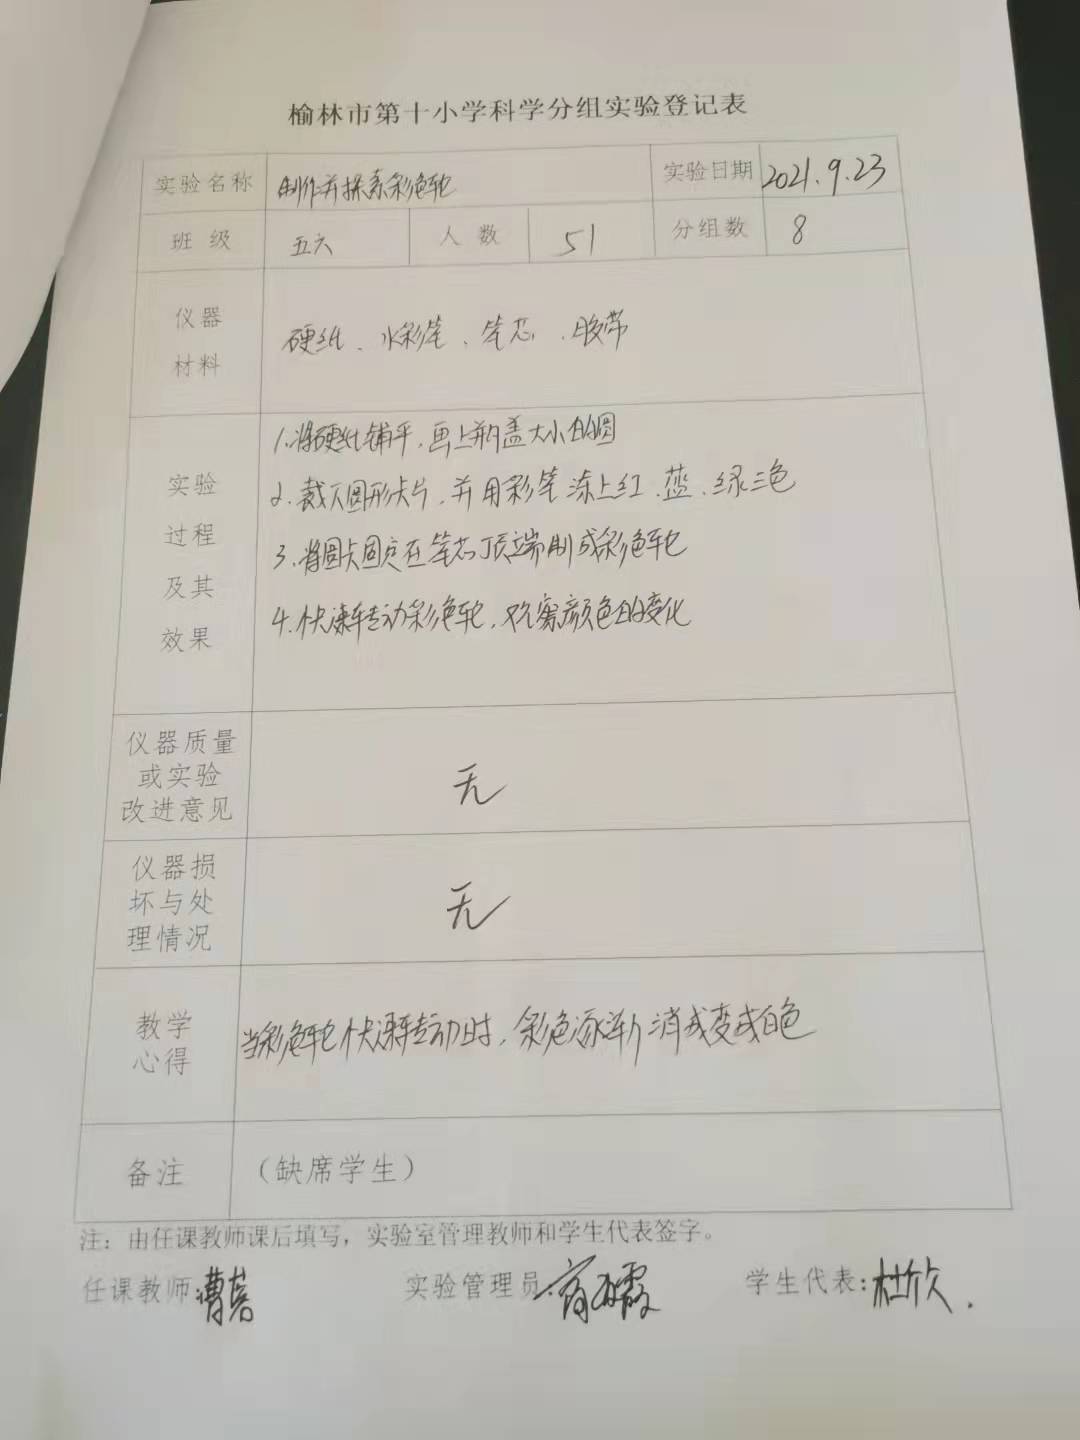 榆林市第十小学科学分组实验登记表
实验名称 制作并探索彩色轮 实验日期 2021.9.23
班级 五六 人数 51 分组数 8
仪器
材料
硬纸、水彩笔、笔芯、胶带
实验
过程
及其
效果
1.将硬纸铺平,画上瓶盖大小的圆
2.裁下圆形卡片,并用彩笔涂上红、蓝、绿三色
3.将圆卡固定在笔芯顶端制成彩色轮
4.快速转动彩色轮,观察颜色的变化
仪器质量
或实验
改进意见
无
仪器损
坏与处
理情况
无
教学
心得
当彩色轮快速转动时,彩色逐渐消或变成白色
备注 (缺席学生)
注:由任课教师课后填写,实验室管理教师和学生代表签字。
任课教师: 实验管理员: 学生代表:杜欣